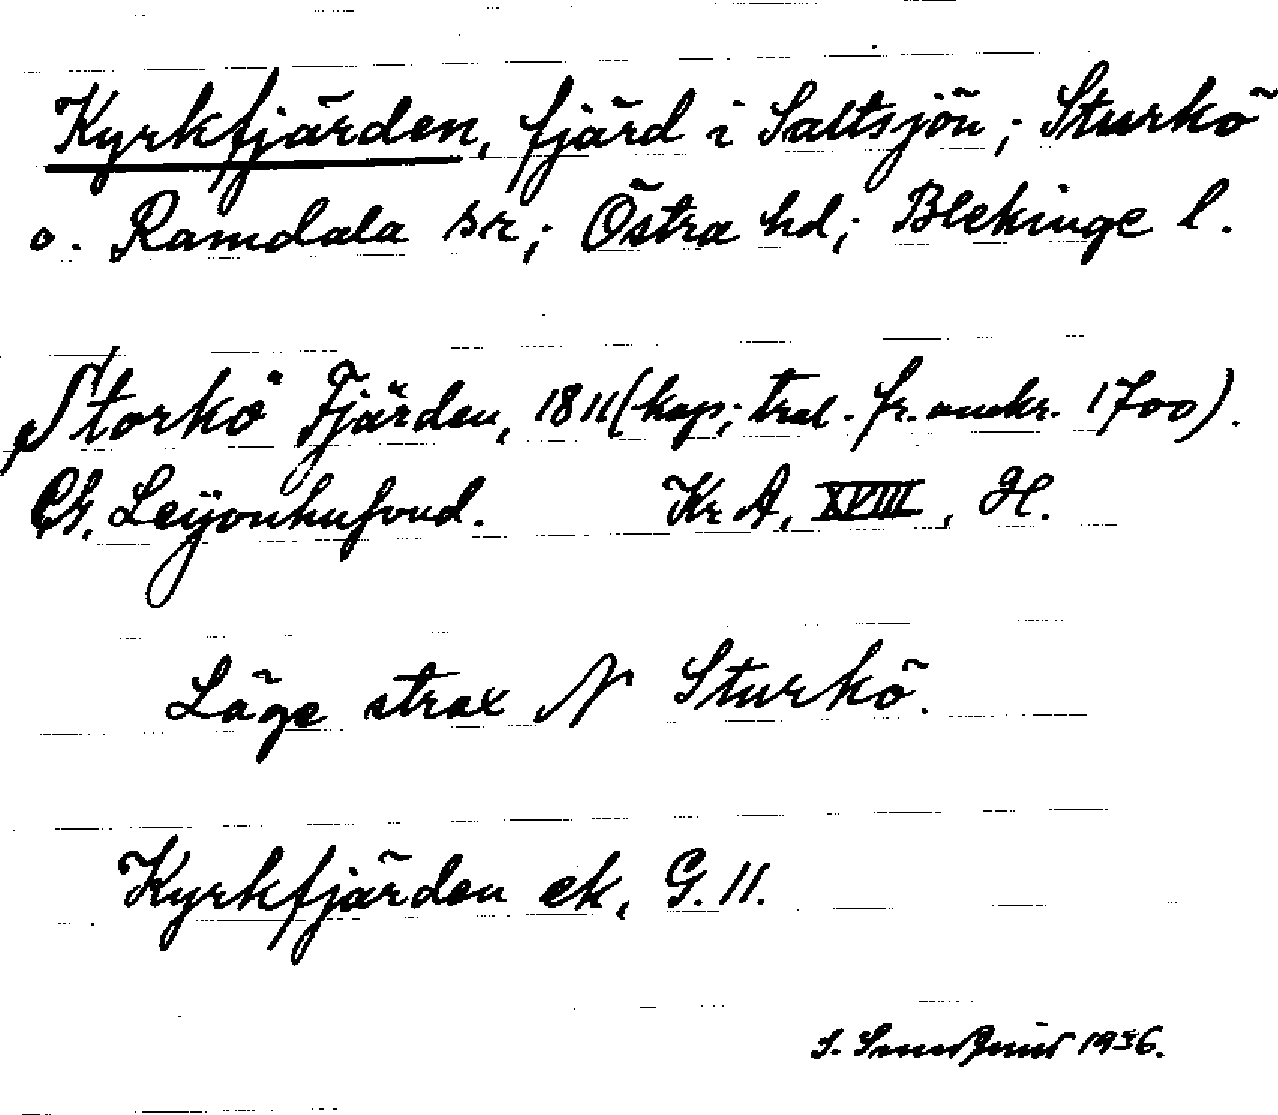 Kyrkfjärden, fjärd i Saltsjön; Sturkö
o. Ramdala snr; Östra hd; Blekinge l.
Storkö Fjärden, 1811 (kop; trol. fr. omkr. 1700).
Ch. Leÿonhufvud. Kr A, XVIII, H.
Läge strax N Sturkö.
Kyrkfjärden ek, G. 11.
1936.